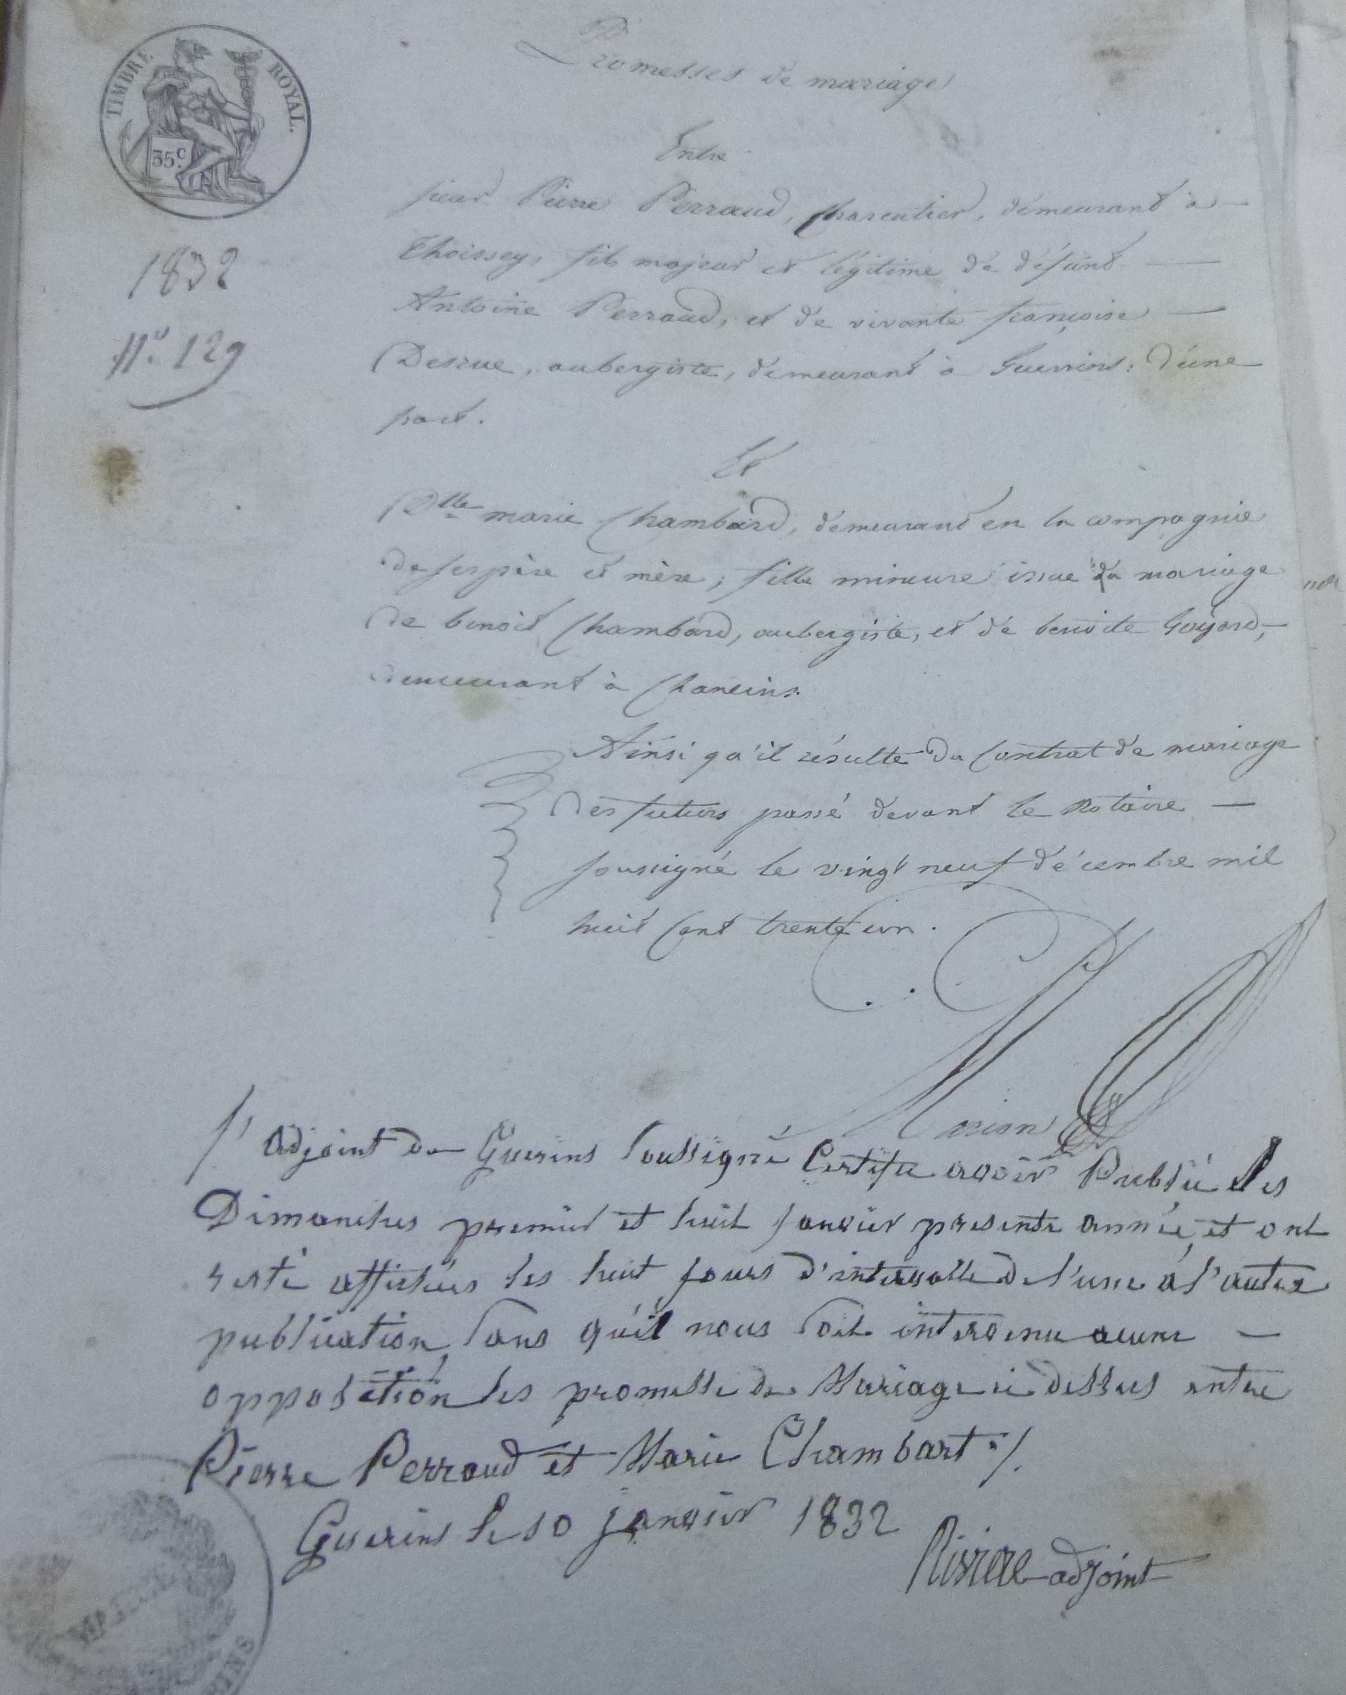 TIMBRE ROYAL.
35 c.
1832
N° 129
Promesses de mariage
Entre
sieur Pierre Perraud, charcutier, demeurant à
Thoissey, fils majeur et légitime de défunt
Antoine Perraud, et de vivante françoise
Desrue, aubergiste, demeurant à Guerrins; d'une
part.
Et
Dlle marie Chambard, demeurant en la compagnie
de ses père et mère, fille mineure issue du mariage
de benoit Chambard, aubergiste, et de benoite Goyard,
demeurant à Chaneins.
Ainsi qu'il résulte du Contrat de mariage
des futurs passé devant le Notaire
soussigné le vingt neuf décembre mil
huit cent trente un.
Morion
l'adjoint de Guerins Soussigné Certifie avoir Publié les
Dimanches premier et huit Janvier presente année, et ont
resté affichées les huit jours d'intervalle de l'une à l'autre
publication, Sans qu'il nous soit intervenu aucune
opposition, les promesse de Mariage ci dessus entre
Pierre Perraud et Marie Chambart ./.
Guerins le 10 janvier 1832
Riviere adjoint
MAIRIE
RINS